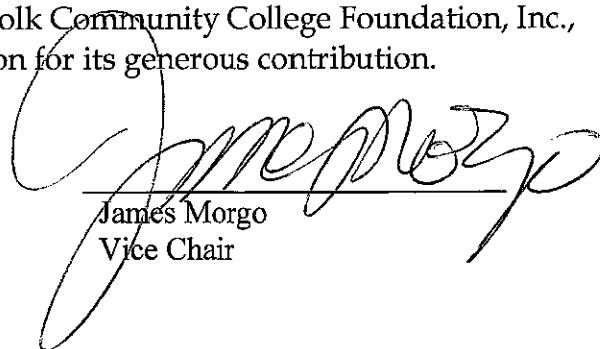 olk Community College Foundation, Inc.,
on for its generous contribution.
James Morgo
James Morgo
Vice Chair